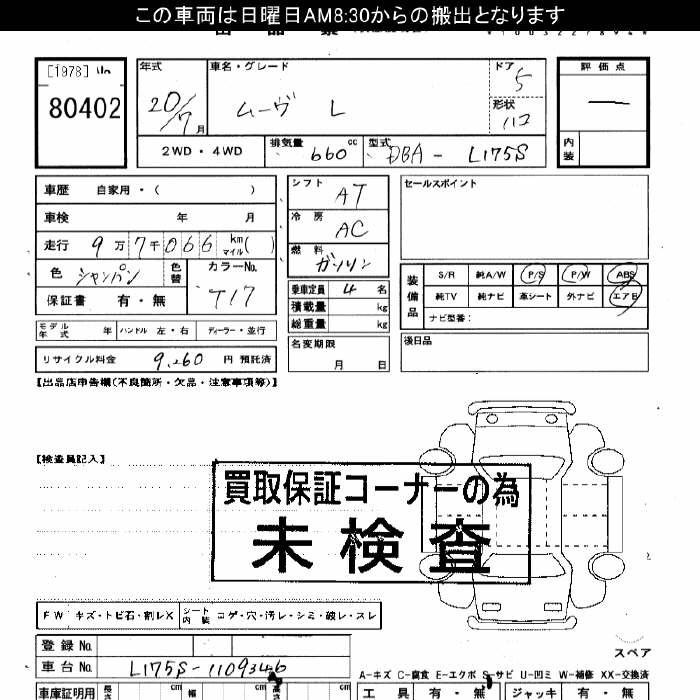 この車両は日曜日AM8:30からの搬出となります
[1978]
80402
年式
20/7月
車名・グレード
ムーヴ L
ドア
5
形状
評価点
内装
2WD・4WD
排気量
660cc
型式
DBA-L175S
車歴 自家用・( )
車検 年 月
走行 9万7千066 km マイル( )
色 シャンパン 色替
カラーNo.
T17
保証書 有・無
シフト
AT
冷房
AC
燃料
ガソリン
乗車定員 4名
積載量 kg
総重量 kg
名変期限
月 日
セールスポイント
装備品
S/R 純A/W P/S P/W ABS
純TV 純ナビ 革シート 外ナビ エアB
ナビ型番:
後日品
モデル年式 年 ハンドル 左・右 ディーラー・並行
リサイクル料金 9,260 円 預託済
【出品店申告欄(不良箇所・欠品・注意事項等)】
【検査員記入】
買取保証コーナーの為
未検査
FW キズ・トビ石・割レX シート内装 コゲ・穴・汚レ・シミ・破レ・スレ
登録No.
車台No. L175S-1109346
スペア
A-キズ C-腐食 E-エクボ S-サビ U-凹ミ W-補修 XX-交換済
車庫証明用 長さ cm 幅 cm 高さ cm
工具 有・無 ジャッキ 有・無